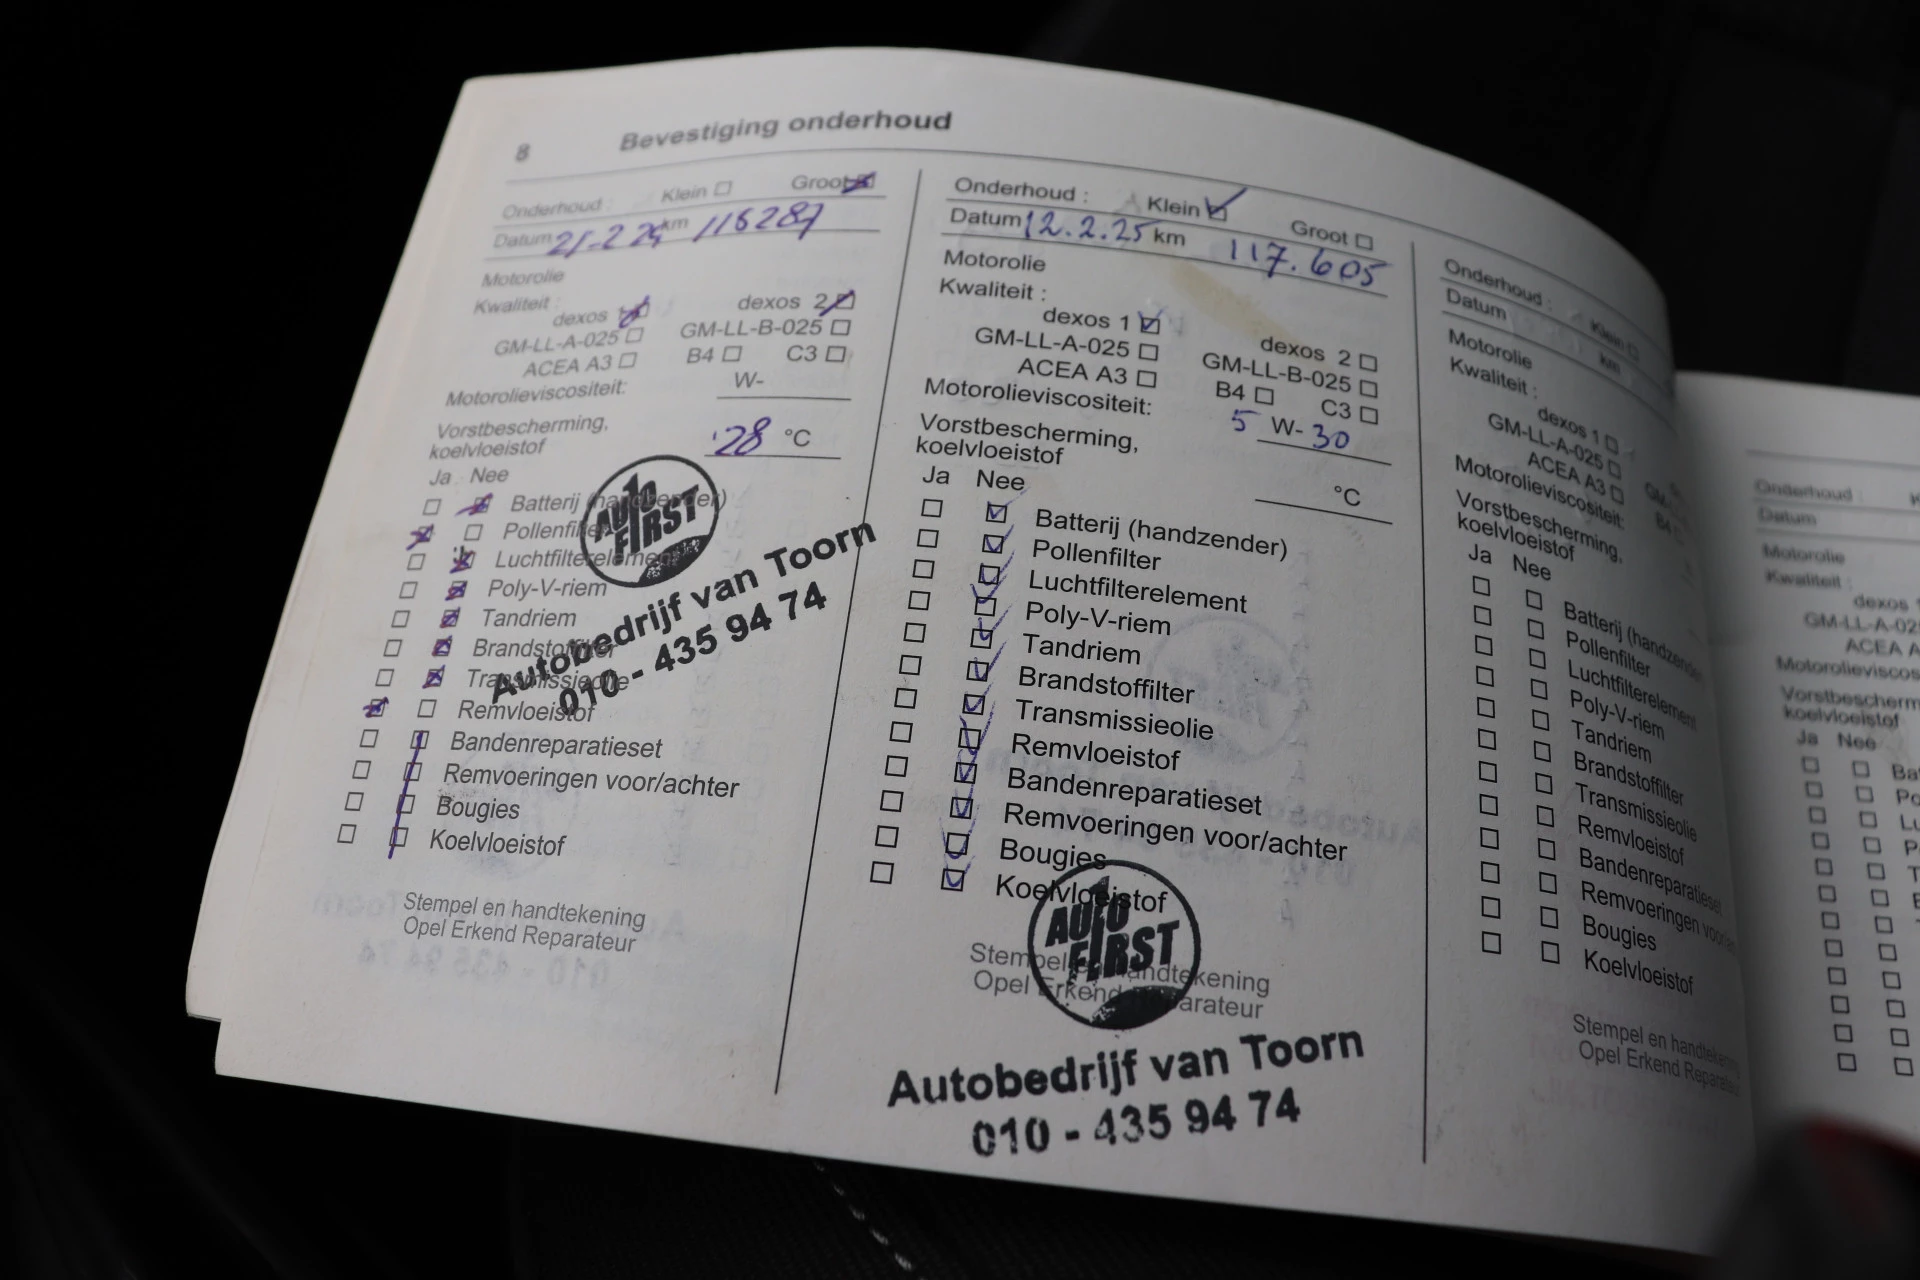 8 Bevestiging onderhoud
Onderhoud : Klein Groot
Datum 21-2 24 km 116287
Motorolie
Kwaliteit :
dexos 1 dexos 2
GM-LL-A-025 GM-LL-B-025
ACEA A3 B4 C3
Motorolieviscositeit: W-
Vorstbescherming,
koelvloeistof -28 °C
Ja Nee
Batterij (handzender)
Pollenfilter
Luchtfilterelement
Poly-V-riem
Tandriem
Brandstoffilter
Transmissieolie
Remvloeistof
Bandenreparatieset
Remvoeringen voor/achter
Bougies
Koelvloeistof
AUTO
FIRST
Autobedrijf van Toorn
010 - 435 94 74
Stempel en handtekening
Opel Erkend Reparateur
Onderhoud : Klein Groot
Datum 12.2.25 km 117.605
Motorolie
Kwaliteit :
dexos 1 dexos 2
GM-LL-A-025 GM-LL-B-025
ACEA A3 B4 C3
Motorolieviscositeit: 5 W- 30
Vorstbescherming,
koelvloeistof °C
Ja Nee
Batterij (handzender)
Pollenfilter
Luchtfilterelement
Poly-V-riem
Tandriem
Brandstoffilter
Transmissieolie
Remvloeistof
Bandenreparatieset
Remvoeringen voor/achter
Bougies
Koelvloeistof
AUTO
FIRST
Stempel en handtekening
Opel Erkend Reparateur
Autobedrijf van Toorn
010 - 435 94 74
Onderhoud : Klein
Datum km
Motorolie
Kwaliteit :
dexos 1
GM-LL-A-025
ACEA A3 B4
Motorolieviscositeit:
Vorstbescherming,
koelvloeistof
Ja Nee
Batterij (handzender
Pollenfilter
Luchtfilterelement
Poly-V-riem
Tandriem
Brandstoffilter
Transmissieolie
Remvloeistof
Bandenreparatieset
Remvoeringen
Bougies
Koelvloeistof
Stempel en handtekening
Opel Erkend Reparateur
Onderhoud :
Datum
Motorolie
Kwaliteit :
dexos
GM-LL-A-02
ACEA A
Motorolieviscos
Vorstbescherm
koelvloeistof
Ja Nee